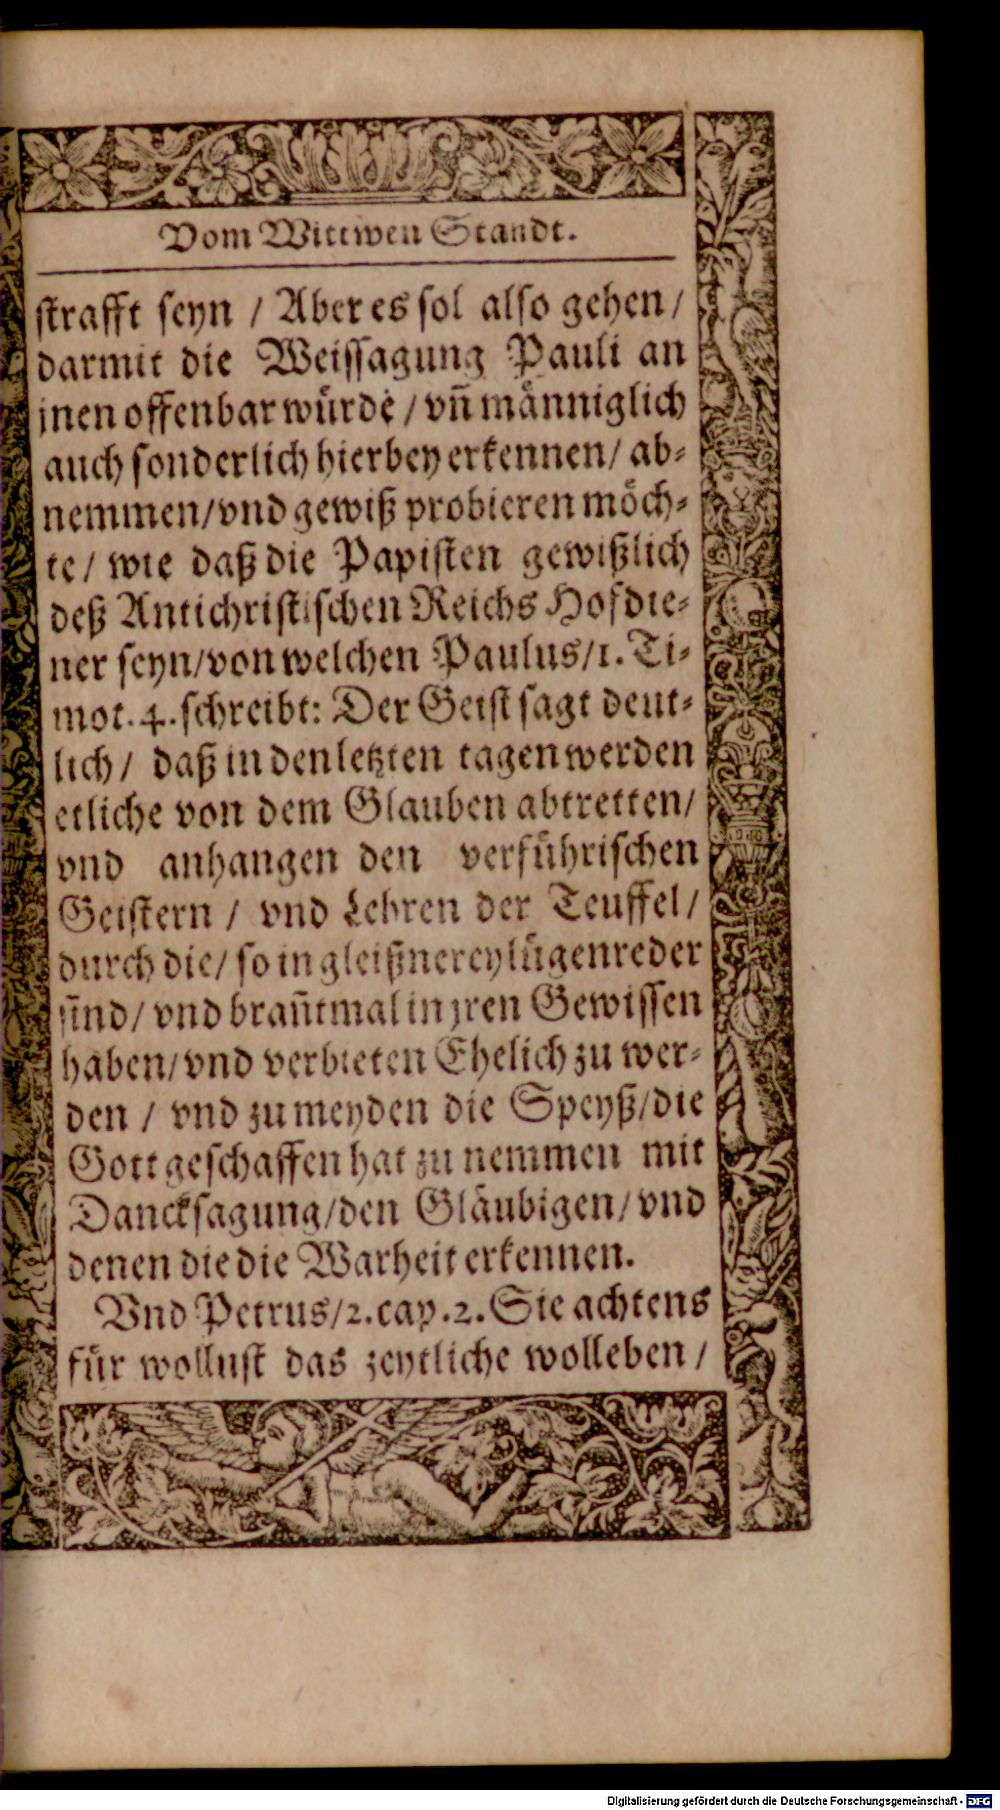 Vom Wittwen Standt.
strafft seyn / Aber es sol also gehen /
darmit die Weissagung Pauli an
jnen offenbar würde / vñ männiglich
auch sonderlich hierbey erkennen / ab⸗
nemmen / vnd gewiß probieren möch⸗
te / wie daß die Papisten gewißlich
deß Antichristischen Reichs Hofdie⸗
ner seyn / von welchen Paulus / 1. Ti⸗
mot. 4. schreibt: Der Geist sagt deut⸗
lich / daß in den letzten tagen werden
etliche von dem Glauben abtretten /
vnd anhangen den verführischen
Geistern / vnd Lehren der Teuffel /
durch die / so in gleißnerey lügenreder
sind / vnd brañtmal in jren Gewissen
haben / vnd verbieten Ehelich zu wer⸗
den / vnd zu meyden die Speyß / die
Gott geschaffen hat zu nemmen mit
Dancksagung / den Gläubigen / vnd
denen die die Warheit erkennen.
Vnd Petrus / 2. cap. 2. Sie achtens
für wollust das zeytliche wolleben /
Digitalisierung gefördert durch die Deutsche Forschungsgemeinschaft - DFG